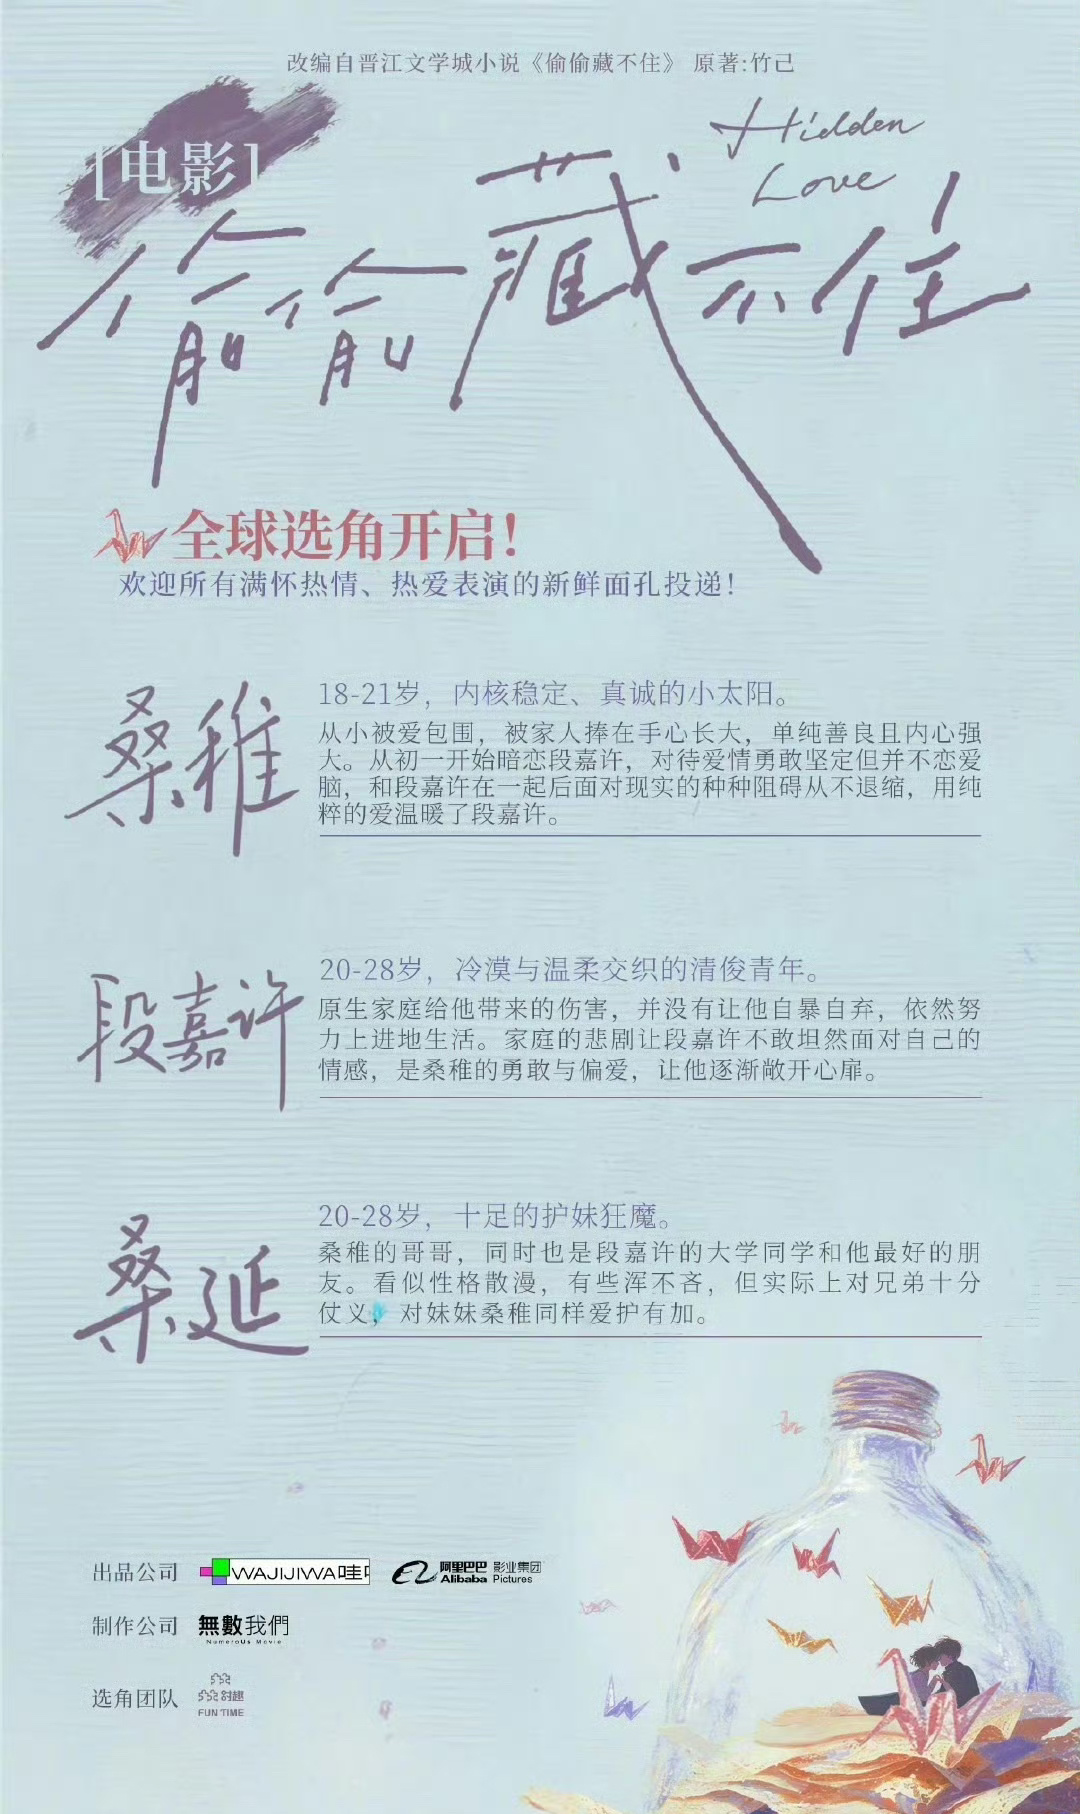 改编自晋江文学城小说《偷偷藏不住》 原著:竹已
[电影]
Hidden
Love
偷偷藏不住
全球选角开启！
欢迎所有满怀热情、热爱表演的新鲜面孔投递！
桑稚
18-21岁，内核稳定、真诚的小太阳。
从小被爱包围，被家人捧在手心长大，单纯善良且内心强
大。从初一开始暗恋段嘉许，对待爱情勇敢坚定但并不恋爱
脑，和段嘉许在一起后面对现实的种种阻碍从不退缩，用纯
粹的爱温暖了段嘉许。
段嘉许
20-28岁，冷漠与温柔交织的清俊青年。
原生家庭给他带来的伤害，并没有让他自暴自弃，依然努
力上进地生活。家庭的悲剧让段嘉许不敢坦然面对自己的
情感，是桑稚的勇敢与偏爱，让他逐渐敞开心扉。
桑延
20-28岁，十足的护妹狂魔。
桑稚的哥哥，同时也是段嘉许的大学同学和他最好的朋
友。看似性格散漫，有些浑不吝，但实际上对兄弟十分
仗义，对妹妹桑稚同样爱护有加。
出品公司 WAJIJIWA哇 阿里巴巴 影业集团
Alibaba Pictures
制作公司 無數我們
NumeroUs Movie
选角团队 时趣
FUN TIME